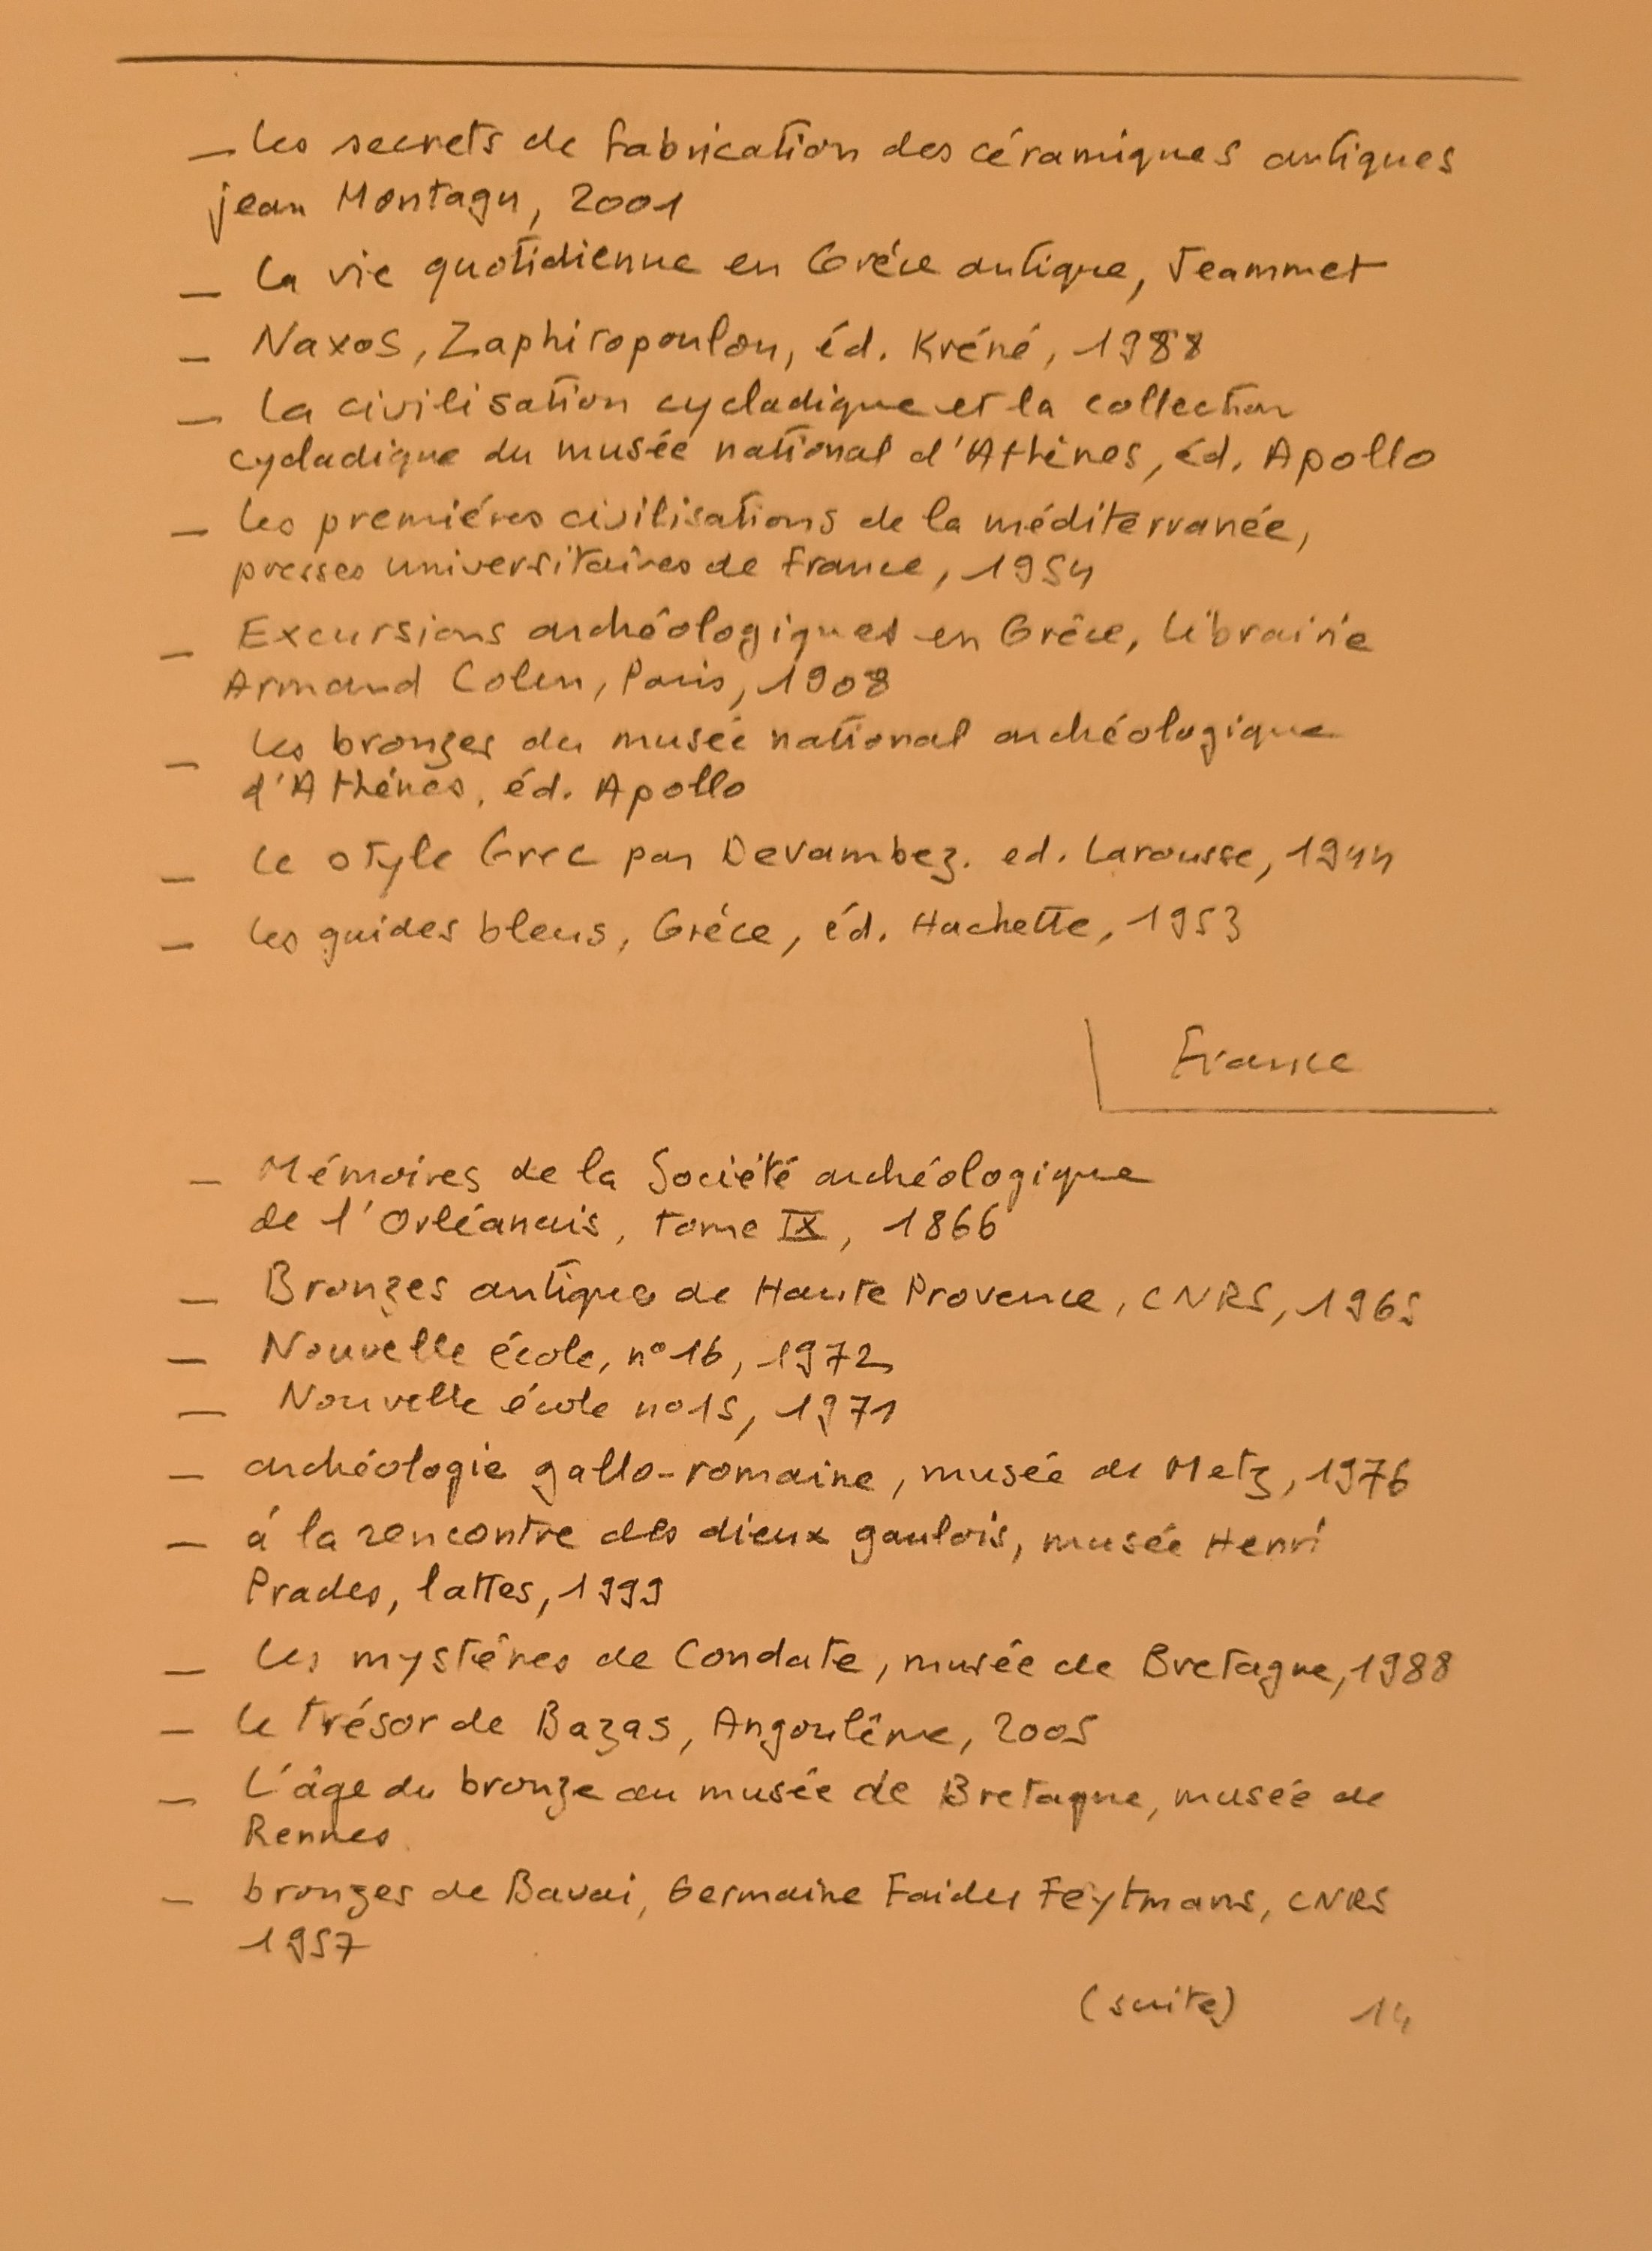 _ les secrets de fabrication des céramiques antiques
jean Montagu, 2001
_ la vie quotidienne en Gréce antique, Jeammet
_ Naxos, Zaphiropoulou, éd. Kréné, 1988
_ la civilisation cycladique et la collection
cycladique du musée national d'Athènes, éd. Apollo
_ les premiéres civilisations de la méditerranée,
presses universitaires de France, 1954
_ Excursions archéologiques en Grêce, librairie
Armand Colin, Paris, 1908
_ les bronzes du musée national archéologique
d'Athénes, éd. Apollo
_ le style Grec par Devambez. ed. Larousse, 1944
_ les guides bleus, Gréce, éd. Hachette, 1953
France
_ Mémoires de la Société archéologique
de l'Orléanais, tome IX, 1866
_ Bronzes antiques de Haute Provence, CNRS, 1965
_ Nouvelle école, n°16, 1972
_ Nouvelle école n°15, 1971
_ archéologie gallo-romaine, musée de Metz, 1976
_ á la rencontre des dieux gaulois, musée Henri
Prades, lattes, 1999
_ les mystêres de Condate, musée de Bretagne, 1988
_ le trésor de Bazas, Angoulême, 2005
_ L'âge du bronze au musée de Bretagne, musée de
Rennes
_ bronzes de Bavai, Germaine Faider Feytmans, CNRS
1957
(suite) 14